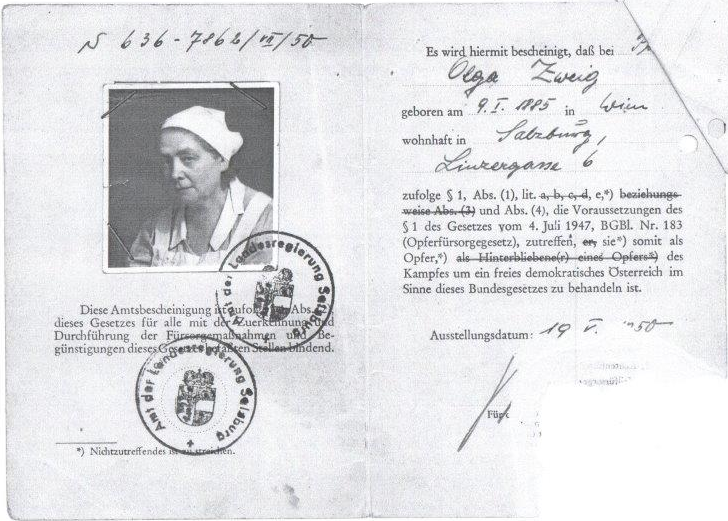 N 636-7862/VII/50
Diese Amtsbescheinigung ist zufolge Abs.
dieses Gesetzes für alle mit der Zuerkennung und
Durchführung der Fürsorgemaßnahmen und Be-
günstigungen dieses Gesetzes befaßten Stellen bindend.
Amt der Landesregierung Salzburg
Amt der Landesregierung Salzburg
*) Nichtzutreffendes ist zu streichen.
Es wird hiermit bescheinigt, daß bei
Olga Zweig
geboren am 9. I. 1885 in Wien
wohnhaft in Salzburg,
Linzergasse 6
zufolge § 1, Abs. (1), lit. a, b, c, d, e,*) beziehungs-
weise Abs. (3) und Abs. (4), die Voraussetzungen des
§ 1 des Gesetzes vom 4. Juli 1947, BGBl. Nr. 183
(Opferfürsorgegesetz), zutreffen, er, sie*) somit als
Opfer,*) als Hinterbliebene(r) eines Opfers*) des
Kampfes um ein freies demokratisches Österreich im
Sinne dieses Bundesgesetzes zu behandeln ist.
Ausstellungsdatum: 19 V. 1950
Für